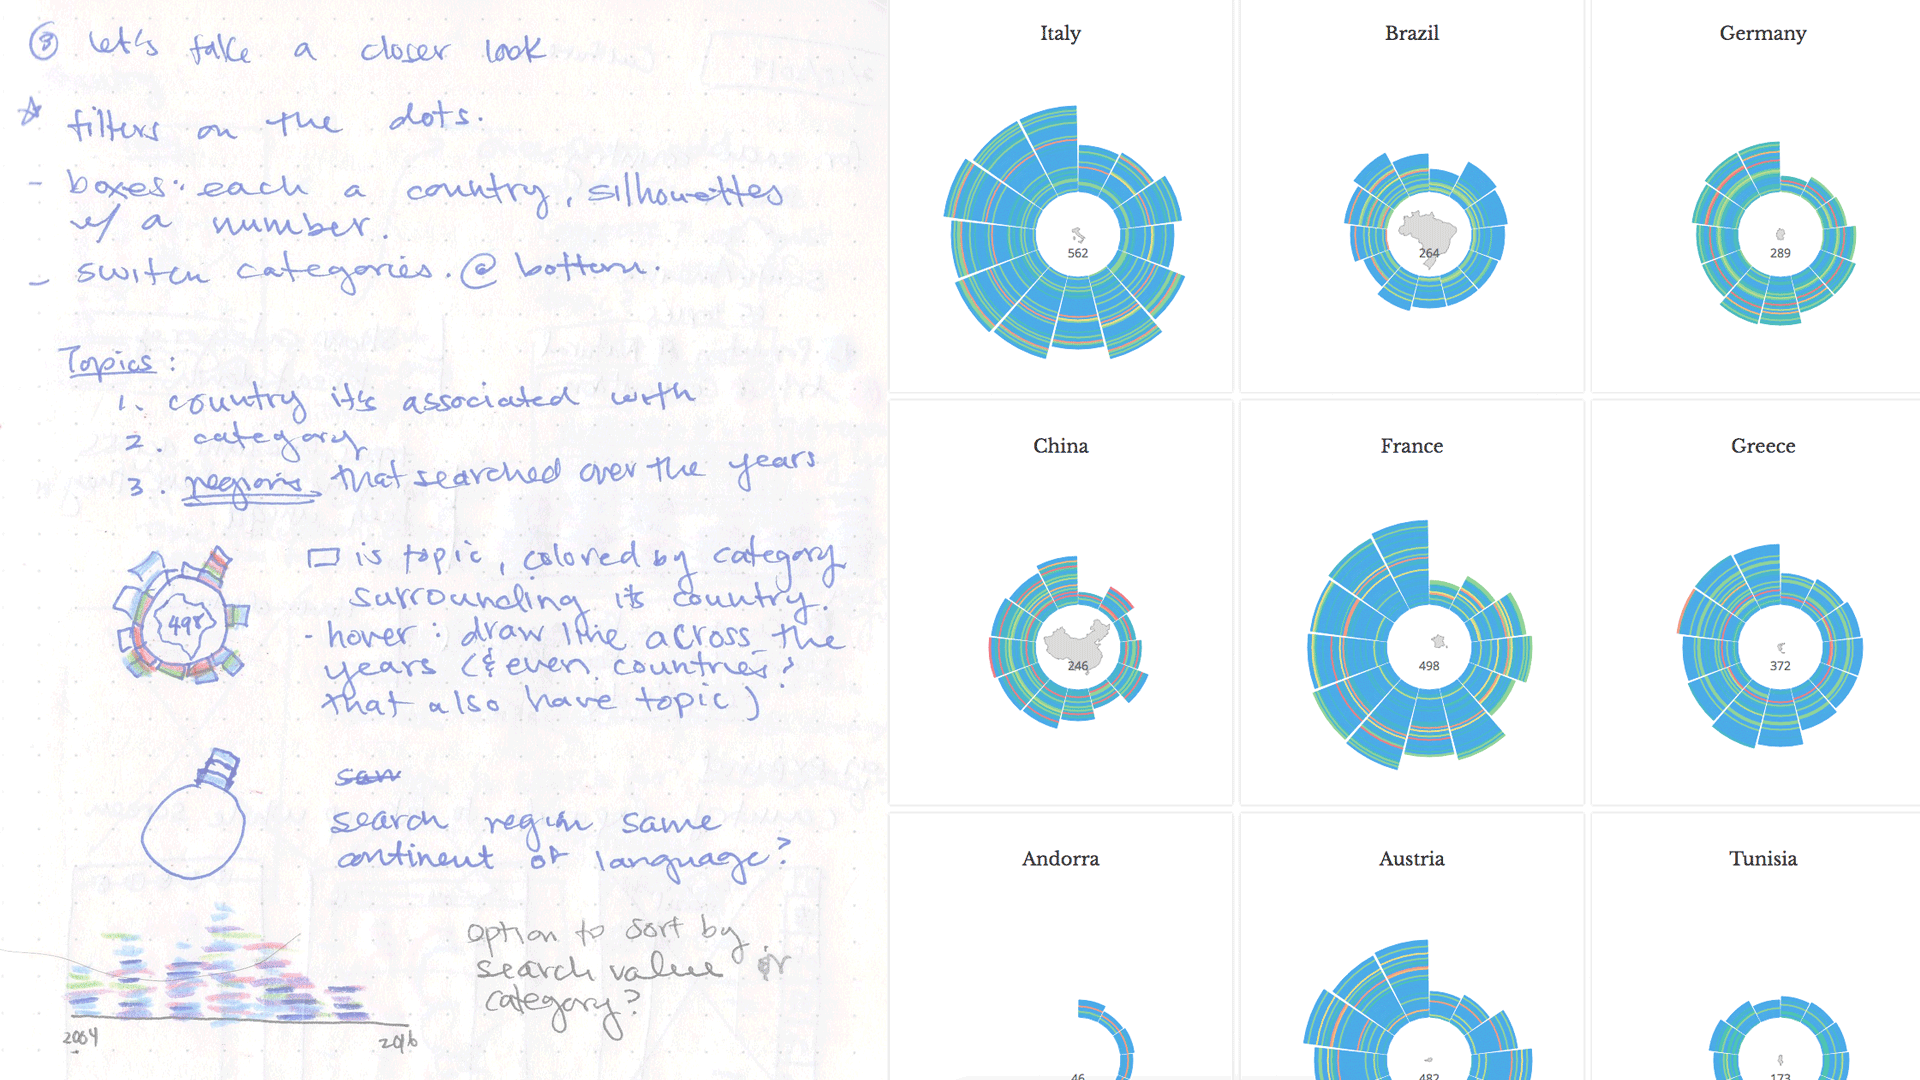 ③ let's take a closer look
☆ filters on the dots.
- boxes: each a country, silhouettes
w/ a number.
- switch categories. @ bottom.
Topics:
1. country it's associated with
2. category
3. regions that searched over the years
498
▭ is topic, colored by category
surrounding its country.
- hover: draw line across the
years (& even countries?
that also have topic)
saw
search region same
continent or language?
option to sort by
search value or
category?
2004
2016
Italy
562
Brazil
264
Germany
289
China
246
France
498
Greece
372
Andorra
46
Austria
482
Tunisia
173